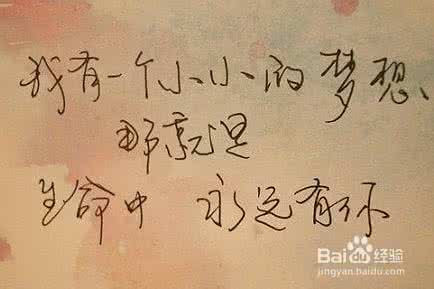 我有一个小小的梦想、
那就是
生命中 永远有你
Baidu经验
jingyan.baidu.com